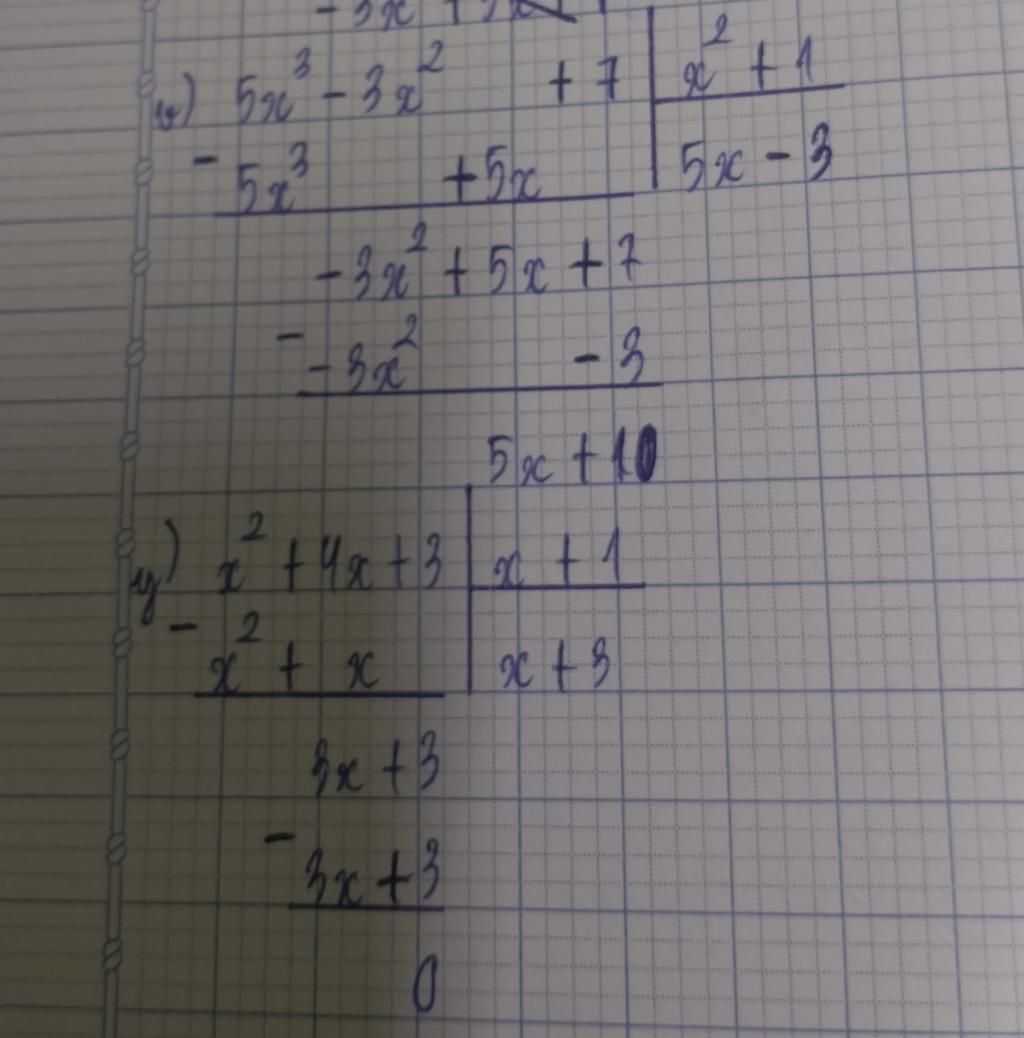 - 3x + 3x
v) 5x³ - 3x² + 7 | x² + 1
- 5x³ + 5x | 5x - 3
- 3x² + 5x + 7
- - 3x² - 3
5x + 10
y) x² + 4x + 3 | x + 1
- x² + x | x + 3
3x + 3
- 3x + 3
0